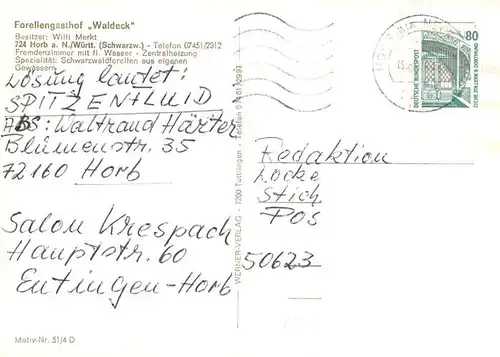 Forellengasthof „Waldeck"
Besitzer: Willi Merkt
724 Horb a. N./Württ. (Schwarzw.) - Telefon 07451/2312
Fremdenzimmer mit fl. Wasser - Zentralheizung
Spezialität: Schwarzwaldforellen aus eigenen
Gewässern
Lösung lautet:
SPITZENFLUID
ABS: Waltraud Härter
Blumenstr. 35
72160 Horb
Salon Krespach
Hauptstr. 60
Eutingen-Horb
Motiv-Nr. 51/4 D
WERNER-VERLAG - 7200 Tuttlingen - Telefon
80
DEUTSCHE BUNDESPOST
ZECHE ZOLLERN II DORTMUND
Redaktion
Locke
Stich.
Pos
50623